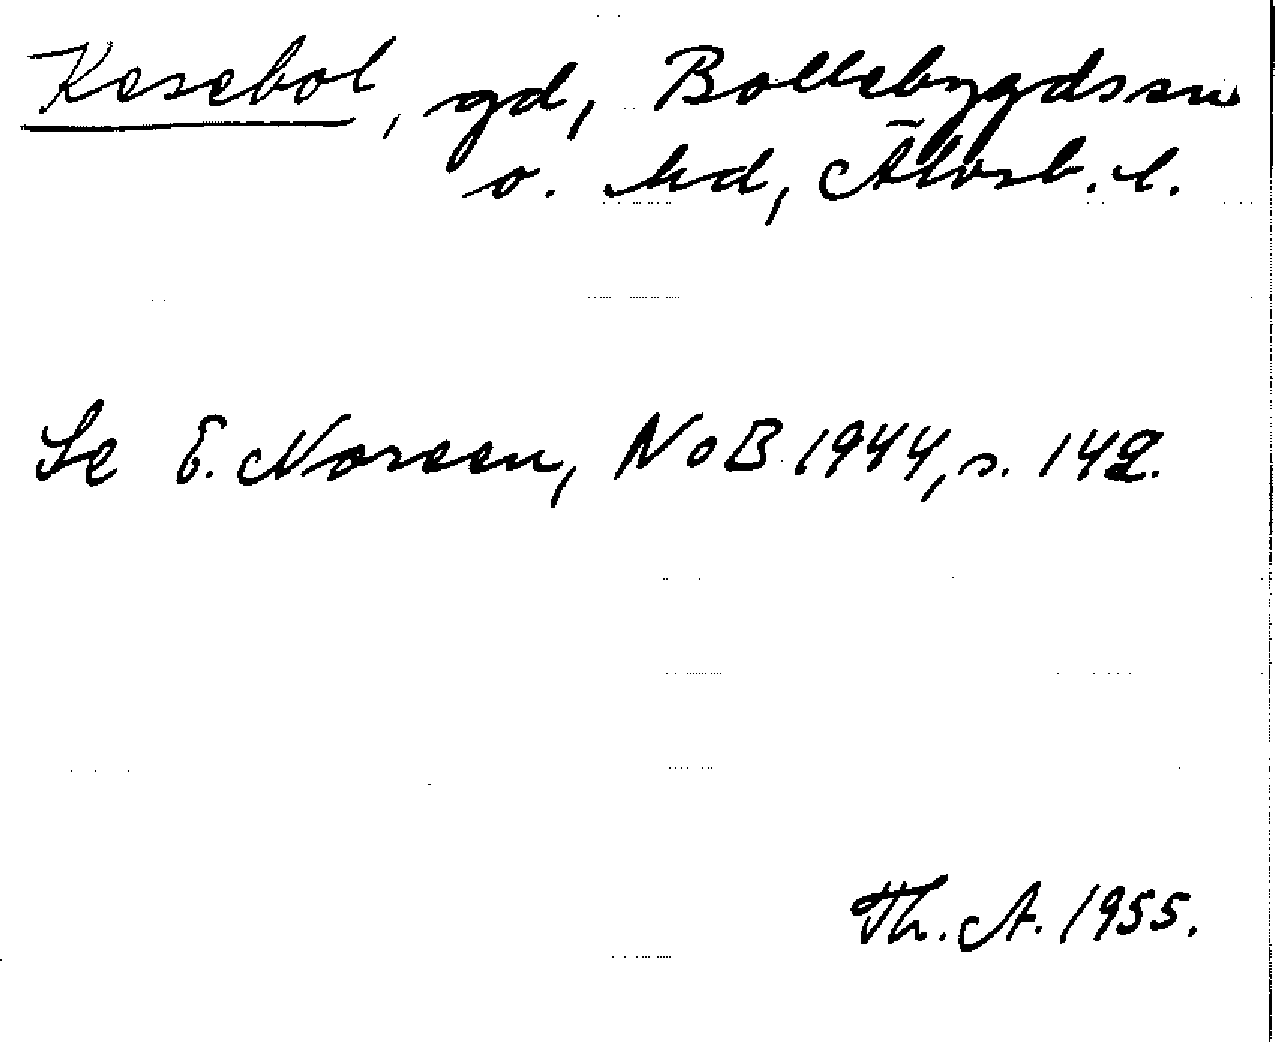 Kesebol, gd, Bollebygds sn
o. hd, Älvsb. l.
Se E. Noreen, NoB 1944, s. 142.
Th. A. 1955.